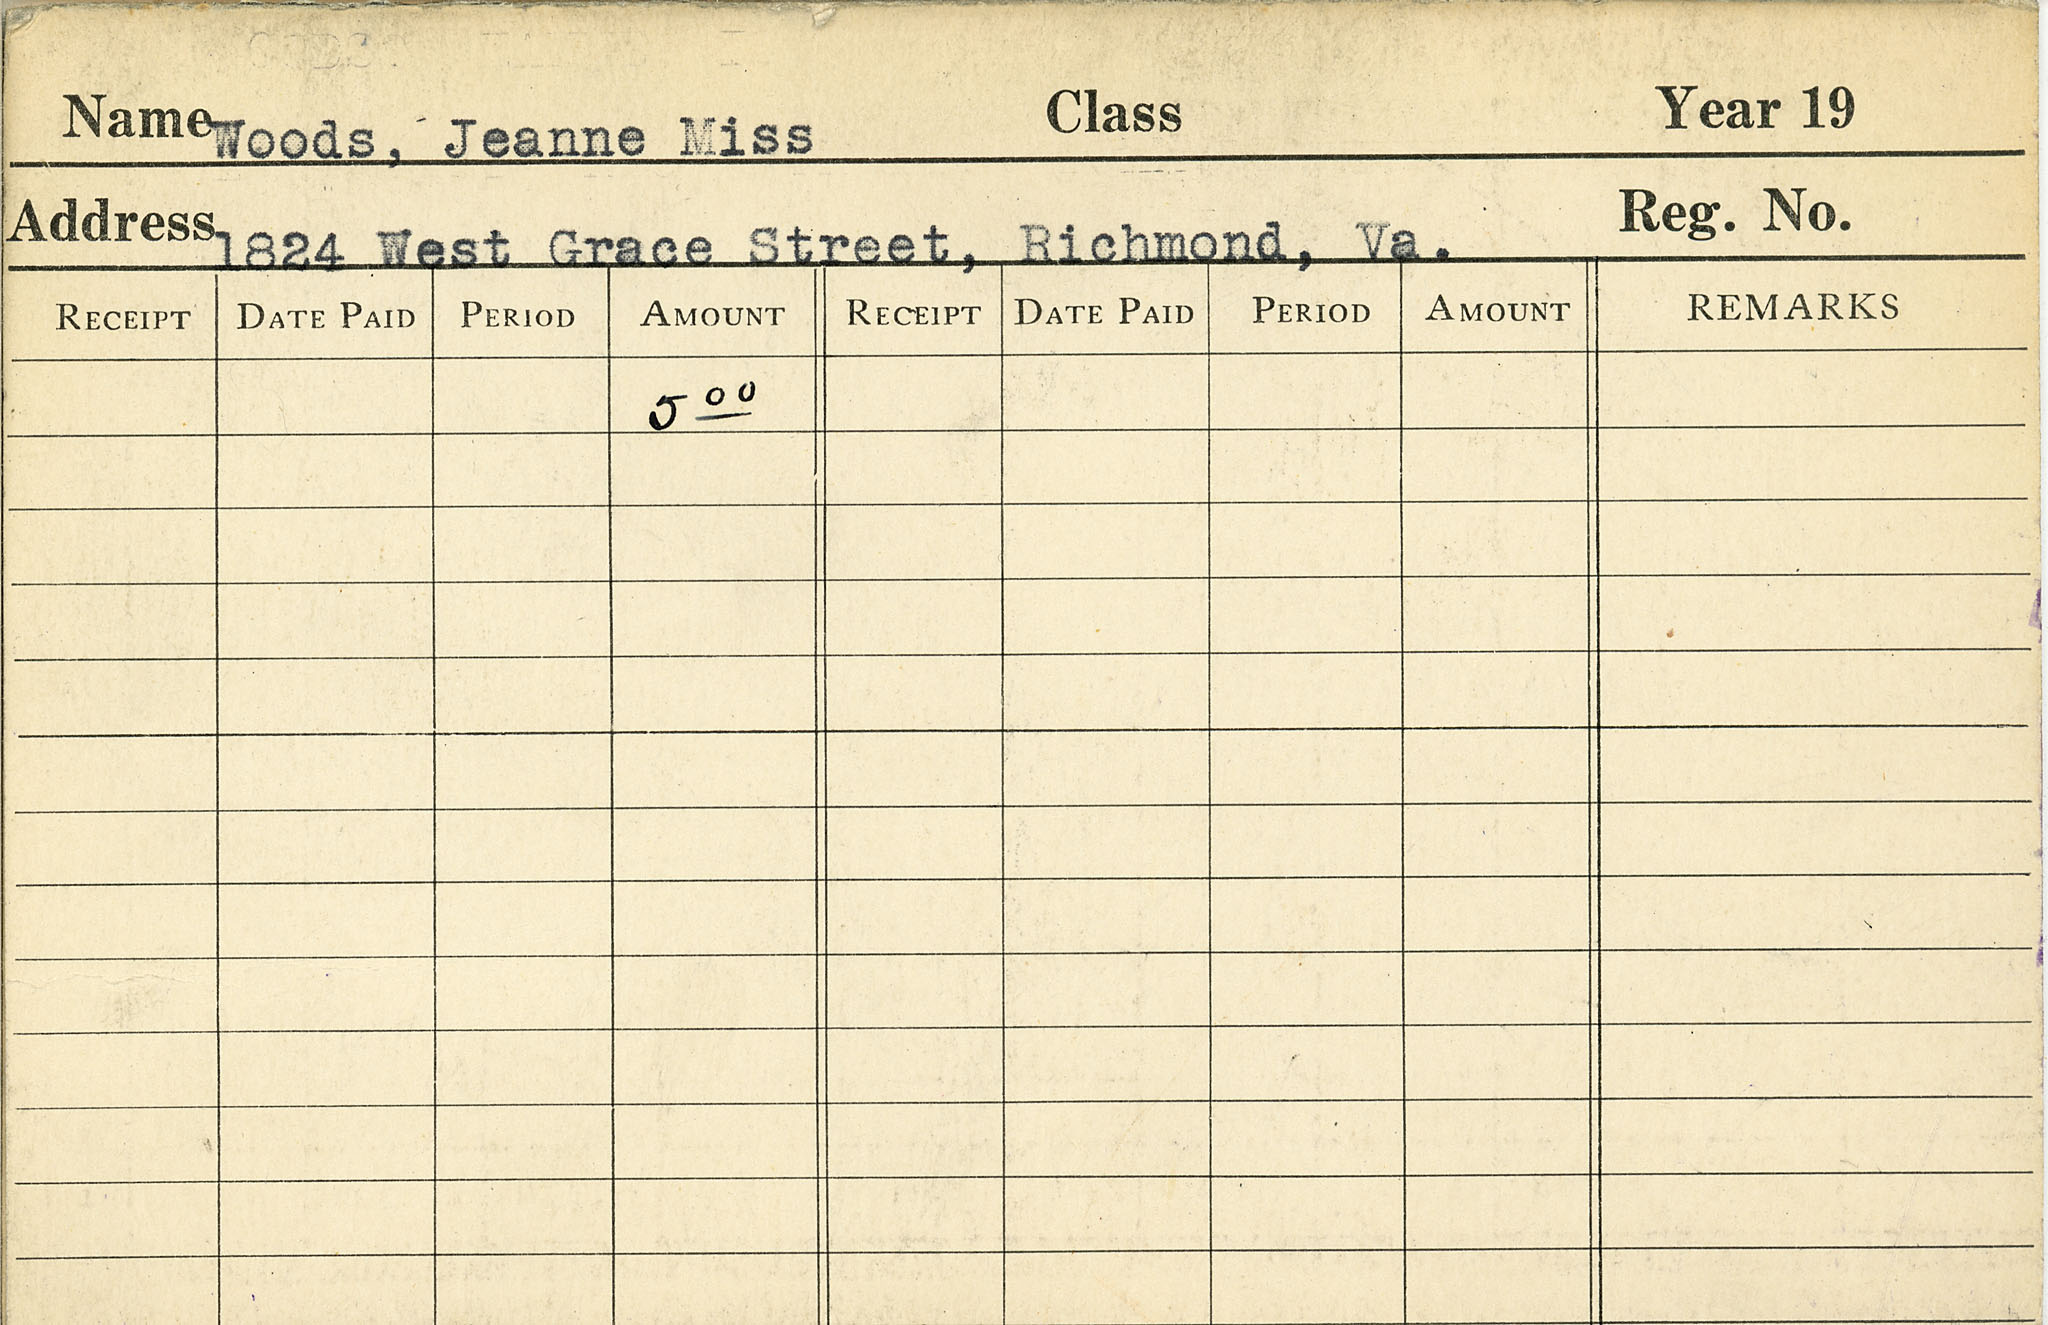 Name Woods, Jeanne Miss Class Year 19
Address 1824 West Grace Street, Richmond, Va. Reg. No.
RECEIPT DATE PAID PERIOD AMOUNT RECEIPT DATE PAID PERIOD AMOUNT REMARKS
5 00